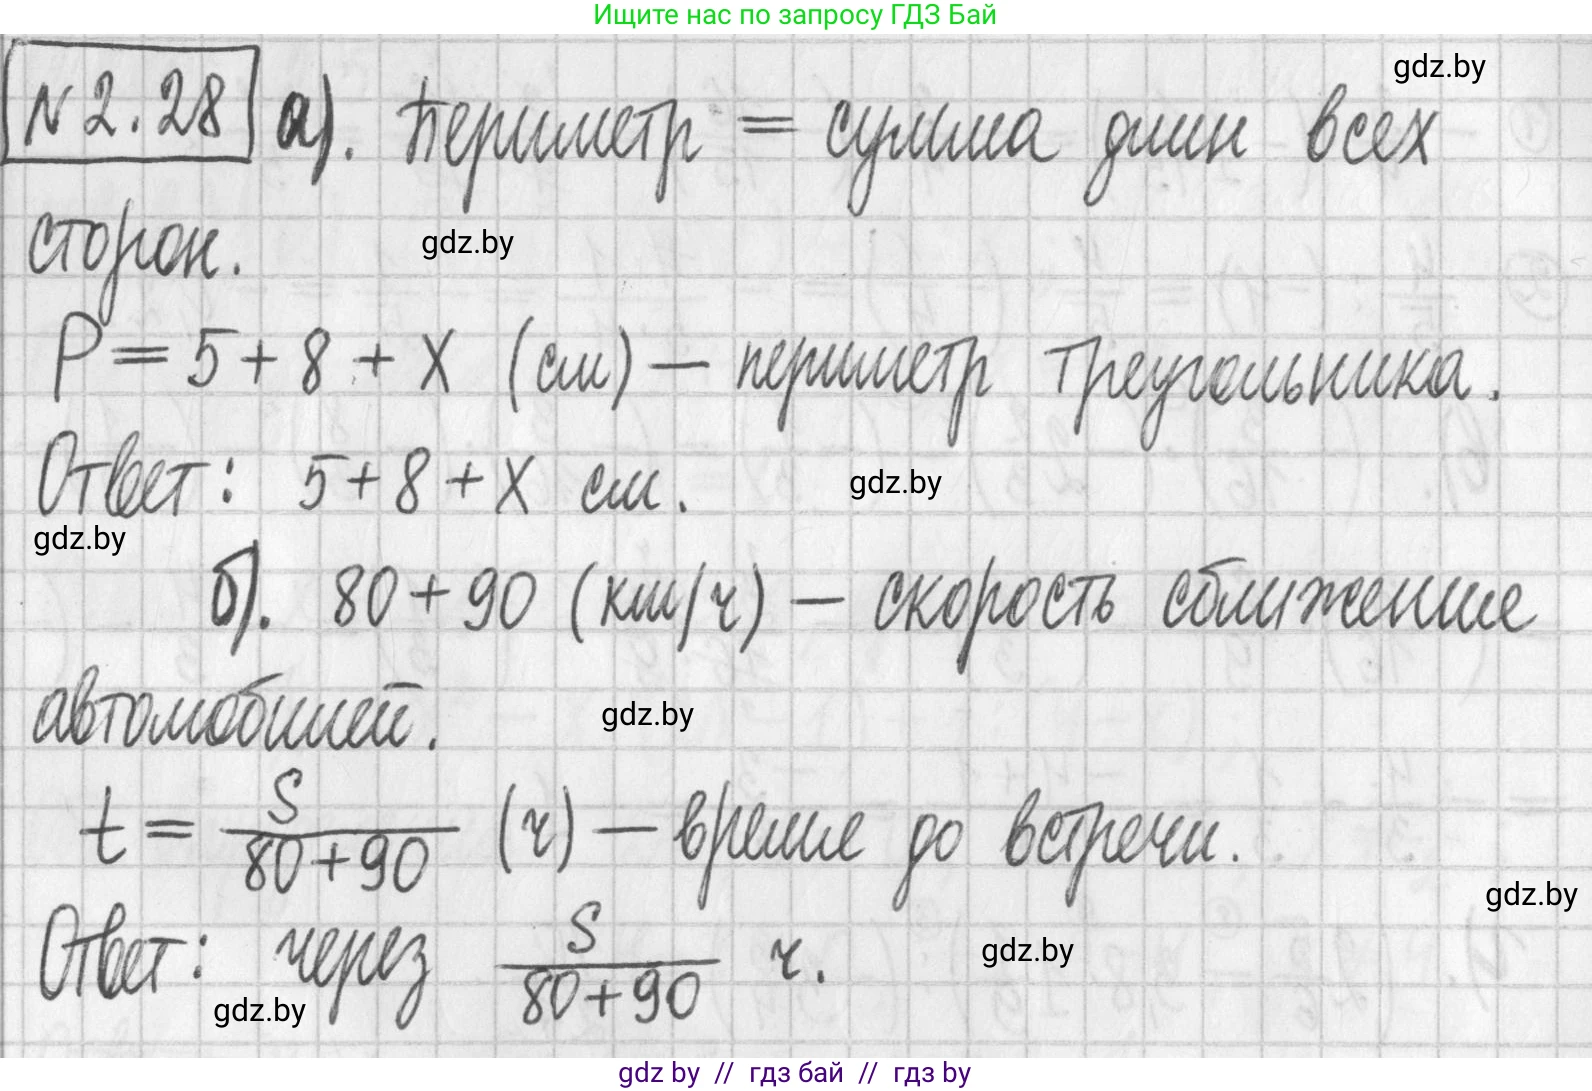 Ищите нас по запросу ГДЗ Бай
gdz.by
№ 2.28 а). Периметр = сумма длин всех
сторон.
gdz.by
P = 5 + 8 + x (см) — периметр треугольника.
Ответ: 5 + 8 + x см.
gdz.by
gdz.by
б). 80 + 90 (км/ч) — скорость сближение
автомобилей.
gdz.by
t = S / (80 + 90) (ч) — время до встречи.
gdz.by
Ответ: через S / (80 + 90) ч.
gdz.by
gdz.by
gdz by // гдз бай // гдз by